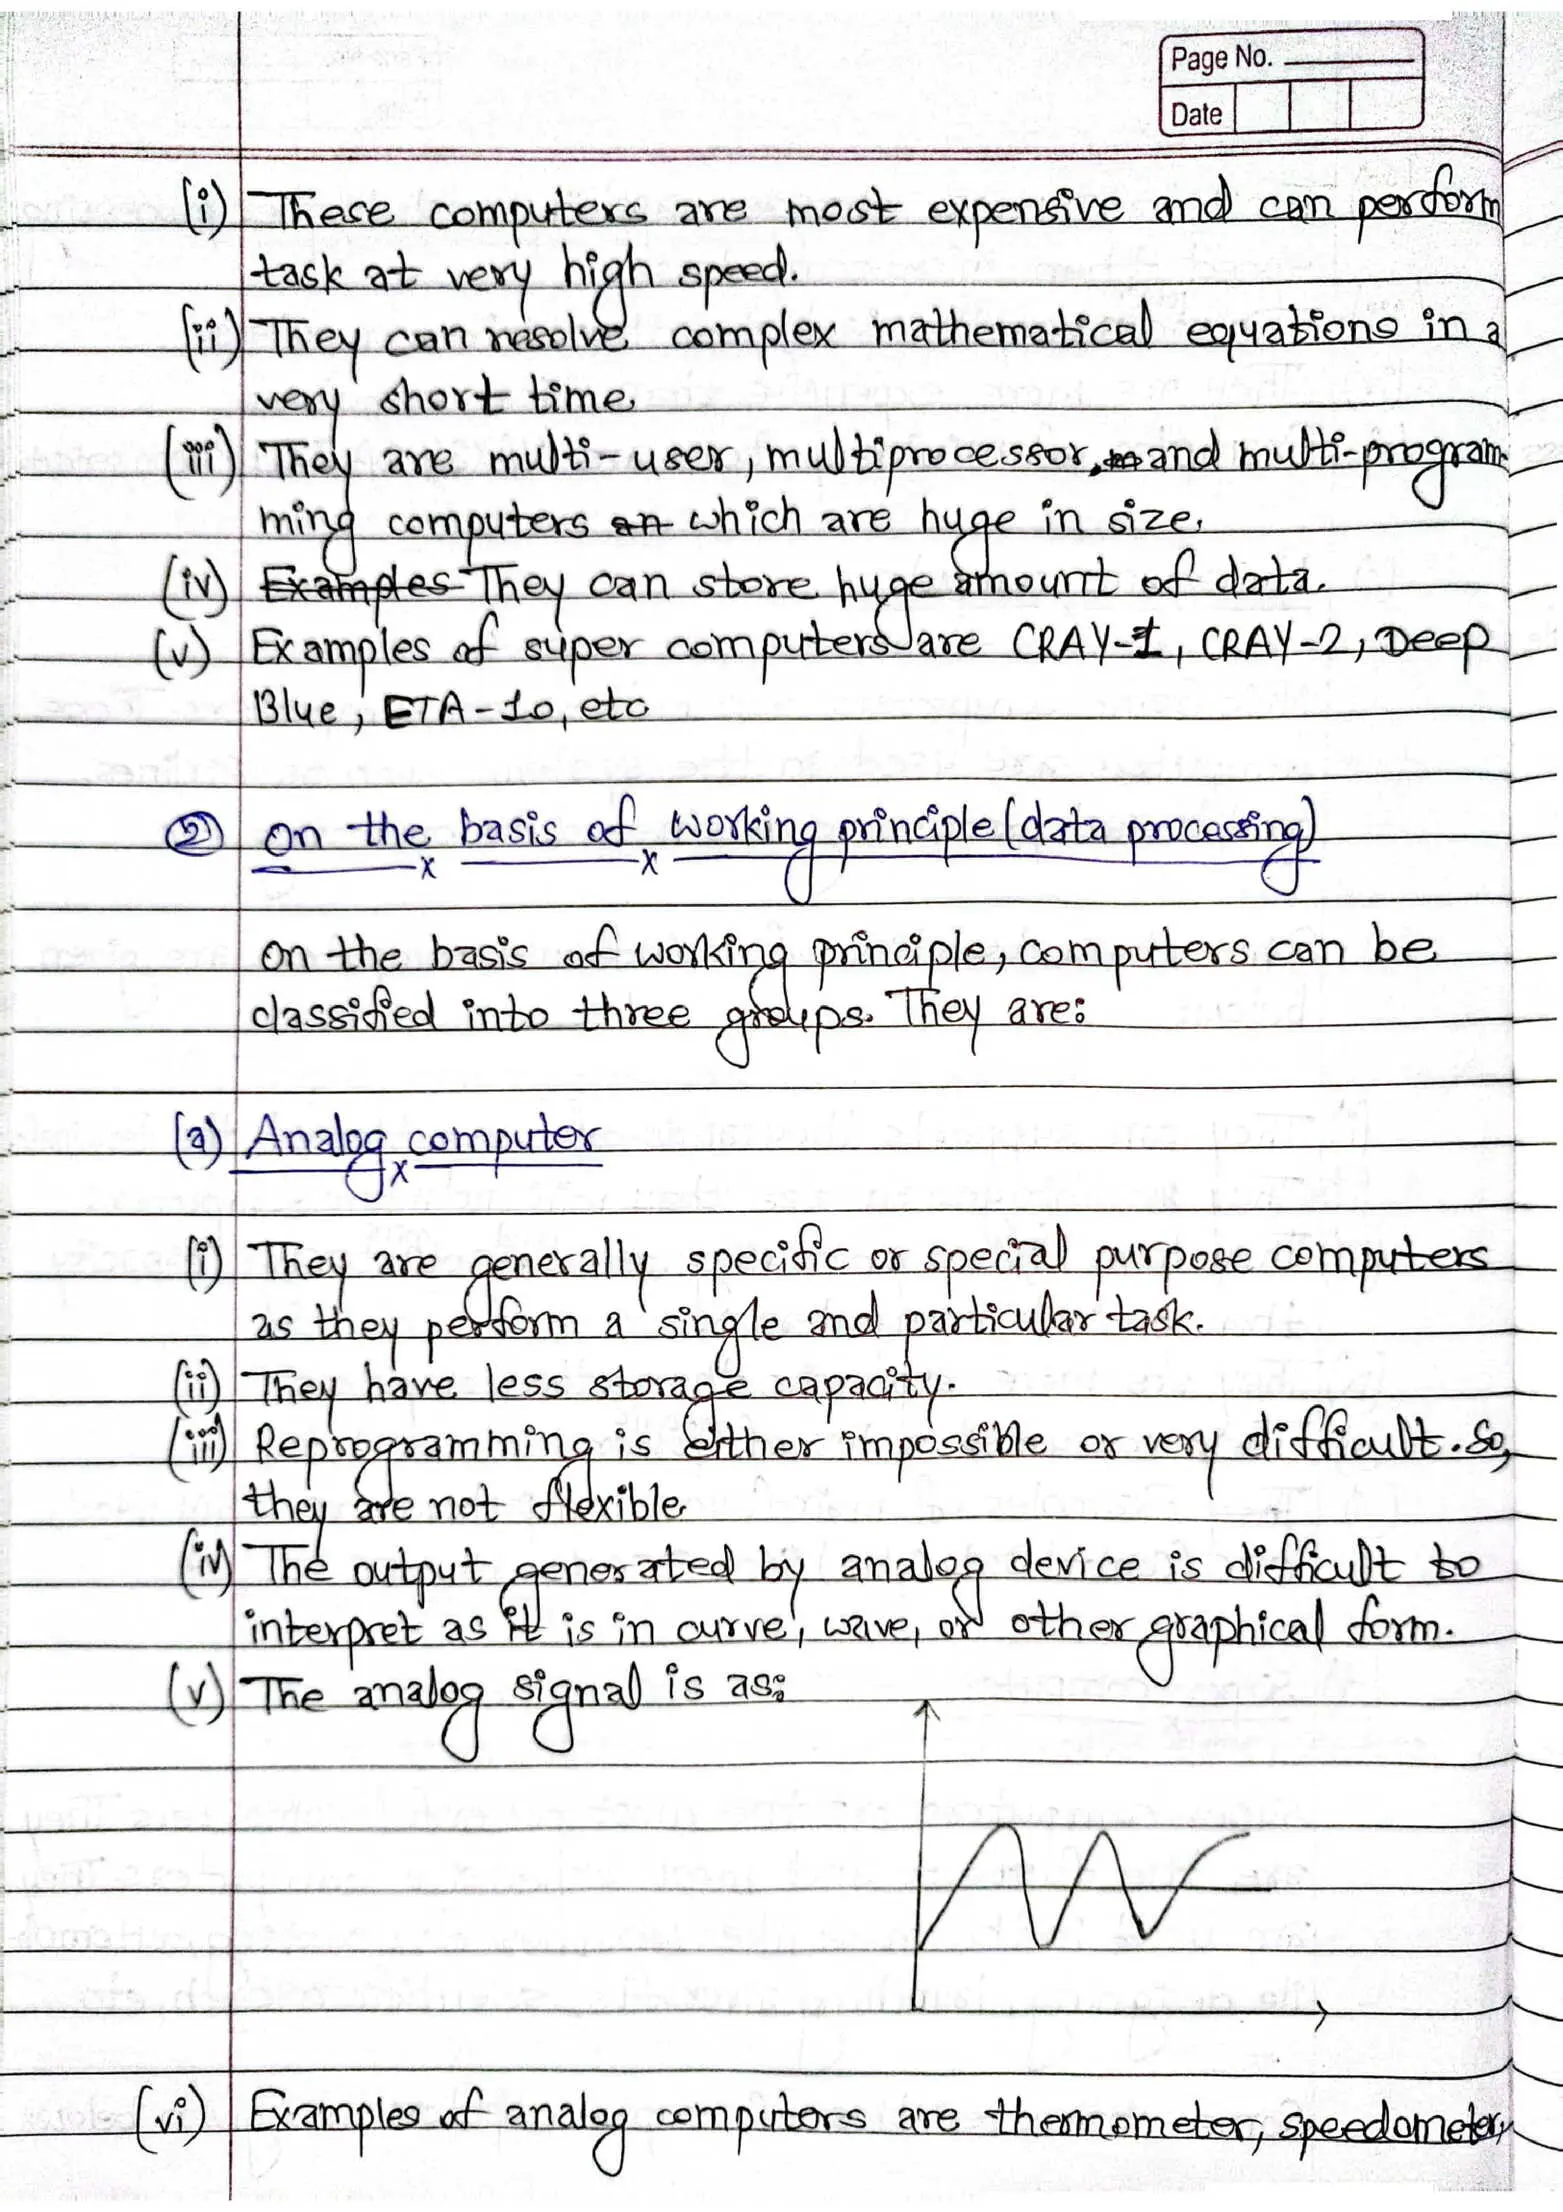 Page No.
Date
(i) These computers are most expensive and can perform
task at very high speed.
(ii) They can resolve complex mathematical equations in a
very short time.
(iii) They are multi-user, multiprocessor, and multi-program-
ming computers which are huge in size.
(iv) Examples They can store huge amount of data.
(v) Examples of super computers are CRAY-1, CRAY-2, Deep
Blue, ETA-10, etc
(2) On the basis of working principle (data processing)
On the basis of working principle, computers can be
classified into three groups. They are:
(a) Analog computer
(i) They are generally specific or special purpose computers
as they perform a single and particular task.
(ii) They have less storage capacity.
(iii) Reprogramming is either impossible or very difficult. So,
they are not flexible.
(iv) The output generated by analog device is difficult to
interpret as it is in curve, wave, or other graphical form.
(v) The analog signal is as:
(vi) Examples of analog computers are thermometer, speedometer,